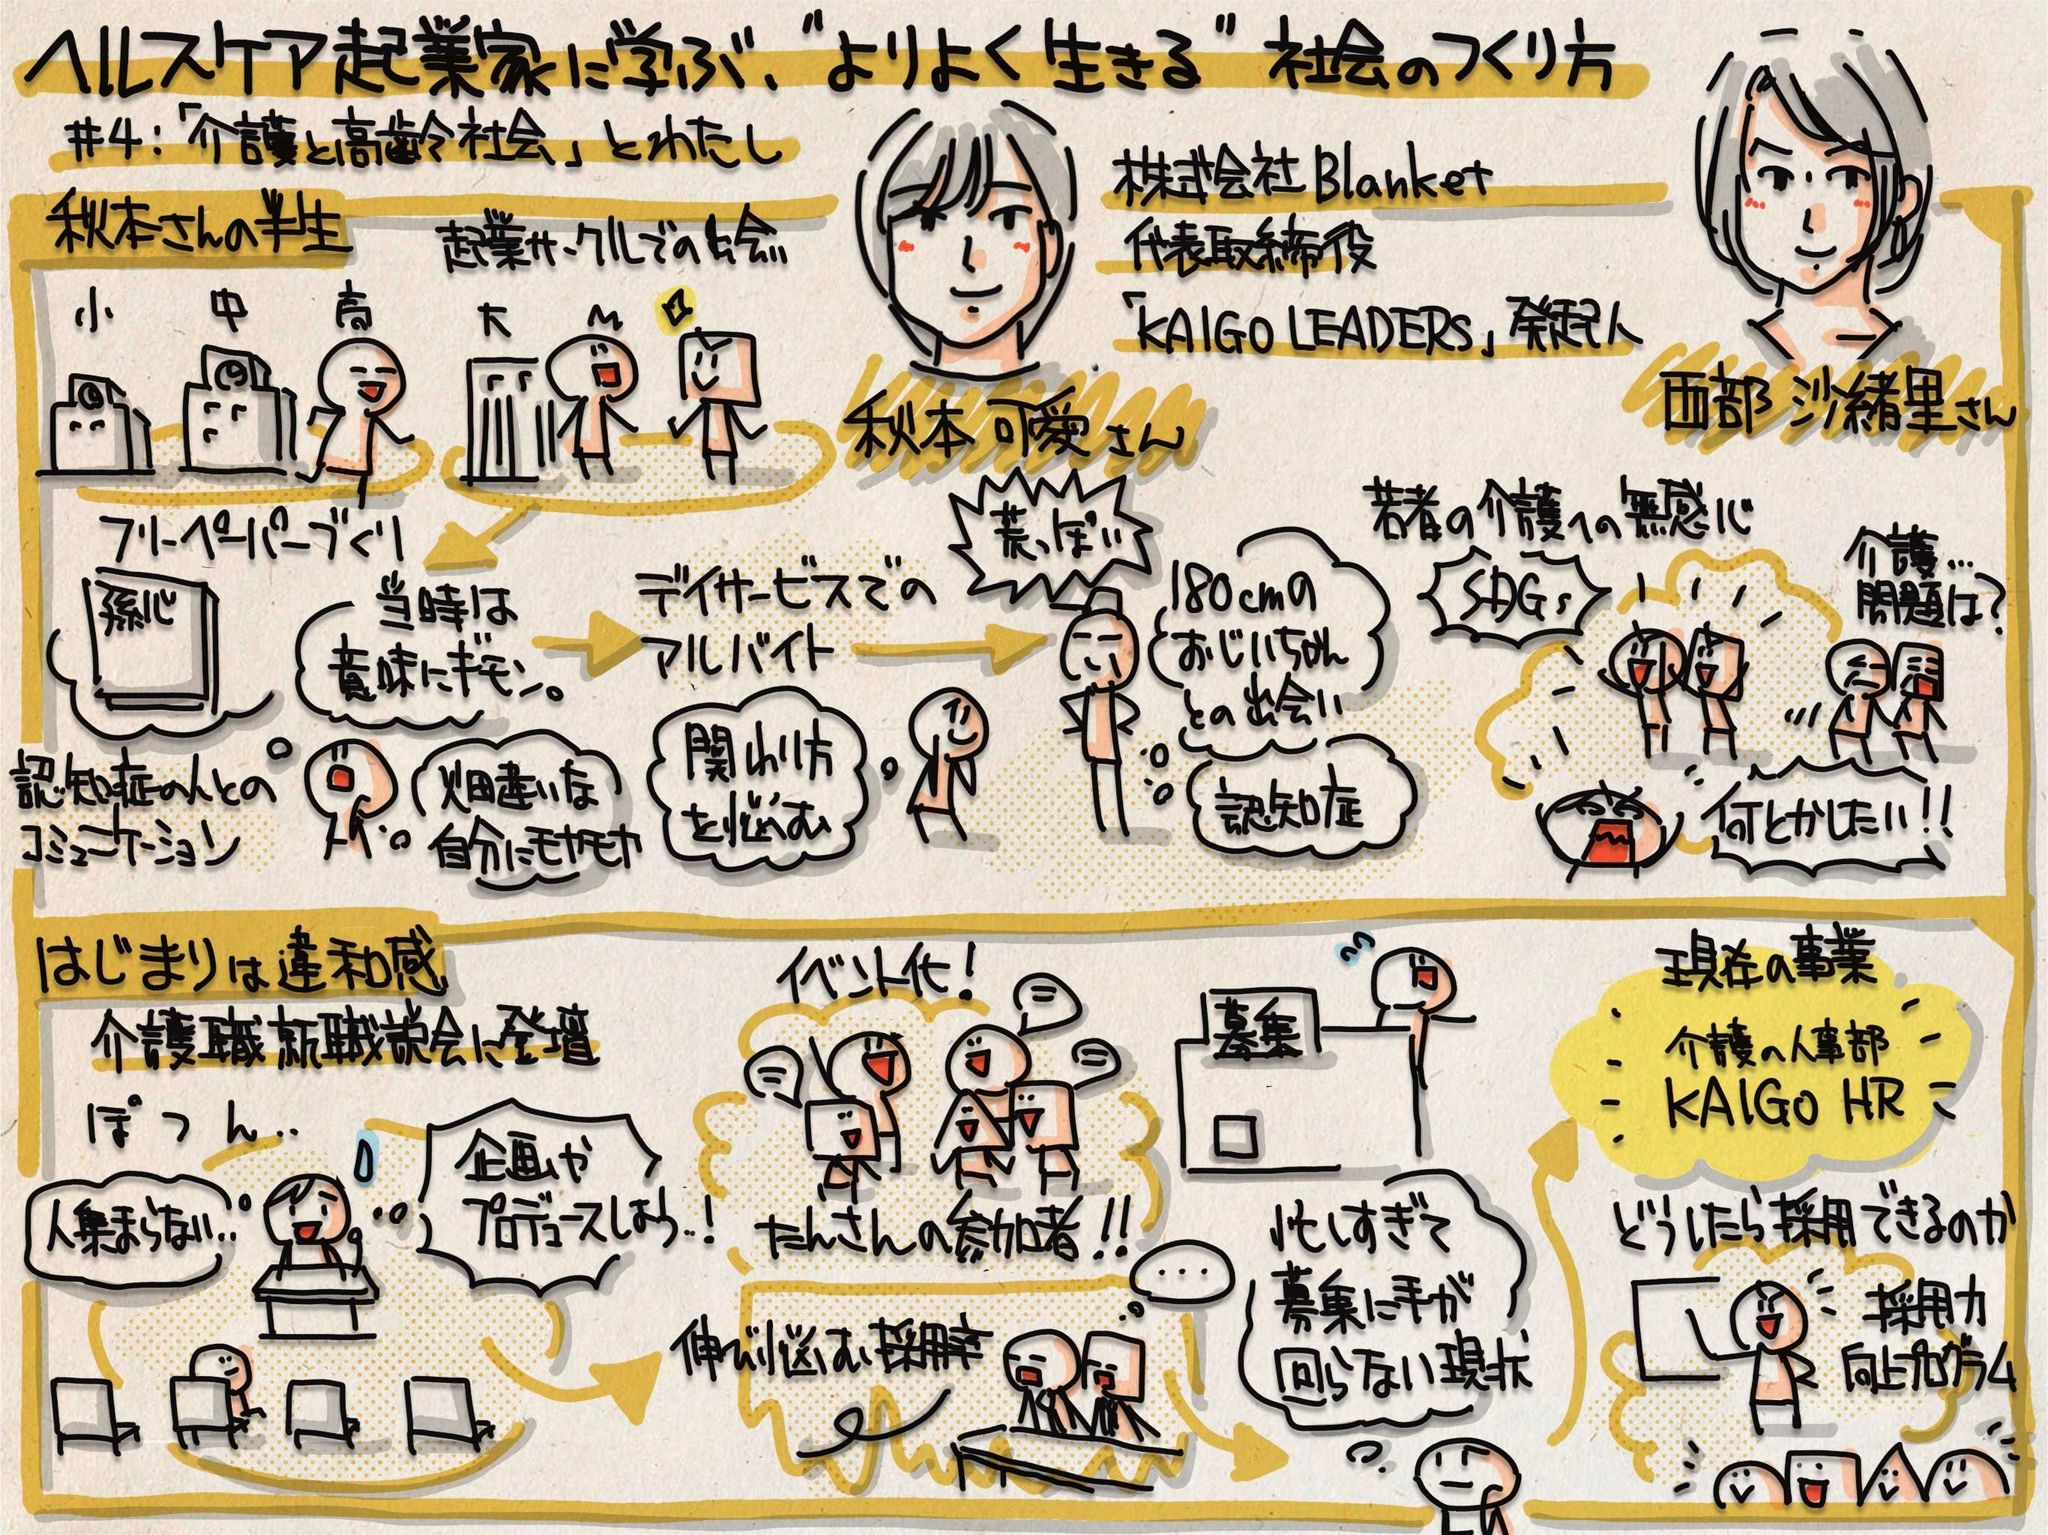 ヘルスケア起業家に学ぶ、"よりよく生きる"社会のつくり方
#4:「介護と高齢社会」とわたし
株式会社Blanket
代表取締役
「KAIGO LEADERS」発起人
秋本 可愛さん
西部 沙緒里さん
秋本さんの半生
起業サークルでの出会い
小
中
高
大
フリーペーパーづくり
孫心
当時は
意味にギモン。
認知症の人との
コミュニケーション
畑違いな
自分にモヤモヤ
デイサービスでの
アルバイト
関わり方
を悩む
荒っぽい
180cmの
おじいちゃん
との出会い
認知症
若者の介護への無関心
SDGs
介護…
問題は?
何とかしたい!!
はじまりは違和感
介護職就職説会に登壇
ぽつん..
人集まらない..
企画や
プロデュースしよう..!
イベント化!
たくさんの参加者!!
伸び悩む採用率
...
募集
忙しすぎて
募集に手が
回らない現状
現在の事業
介護の人事部
KAIGO HR
どうしたら採用できるのか
採用力
向上プログラム